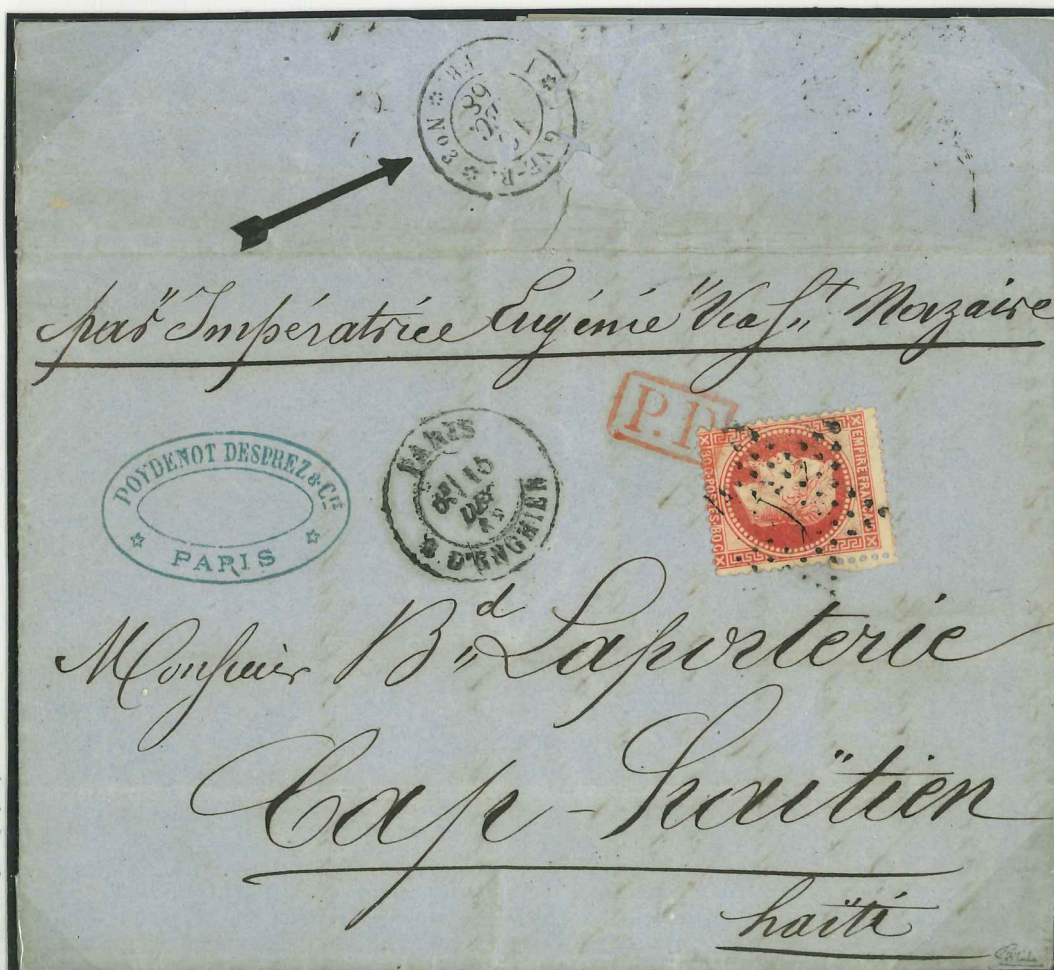 par "Impératrice Eugénie" Via St Nazaire
POYDENOT DESPREZ & Cie
PARIS
PARIS
15
DEC
D'ENGHIEN
P.P
EMPIRE FRANÇAIS
80 C POSTES 80 C
Monsieur Bd Laporterie
Cap-haïtien
haïti